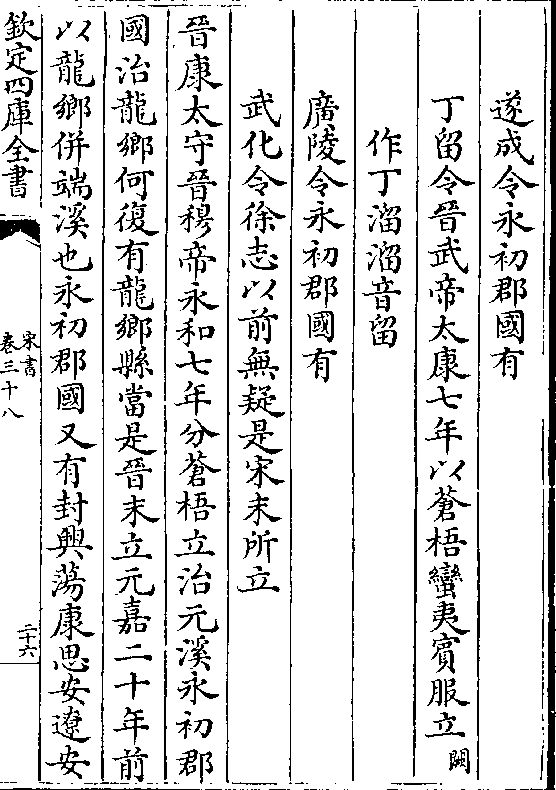 遂成令永初郡國有
丁留令晉武帝太康七年以蒼梧蠻夷賓服立闕
作丁溜溜音留
廣陵令永初郡國有
武化令徐志以前無疑是宋末所立
晉康太守晉穆帝永和七年分蒼梧立治元溪永初郡
國治龍鄉何復有龍鄉縣當是晉末立元嘉二十年前
以龍鄉併端溪也永初郡國又有封興蕩康思安遼安
欽定四庫全書
宋書
卷三十八
二十六